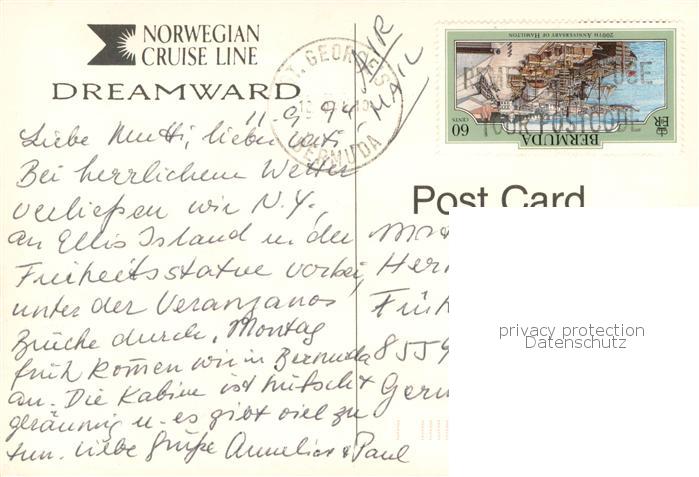 NORWEGIAN
CRUISE LINE
DREAMWARD
11.9.94
Liebe Mutti, lieber Vati,
Bei herrlichem Wetter
verließen wir N.Y.,
an Ellis Island u. der
Freiheitsstatue vorbei,
unter der Veranzanos
Brücke durch. Montag
früh kommen wir in Bermuda
an. Die Kabine ist hübsch +
geräumig u. es gibt viel zu
tun. Liebe Grüße Annelies + Paul
ST. GEORGE'S
BERMUDA
AIR
MAIL
200TH ANNIVERSARY OF HAMILTON
BERMUDA
60
CENTS
ER
YOUR POSTCODE
Post Card
Her
Früh
8559
Germ
privacy protection
Datenschutz